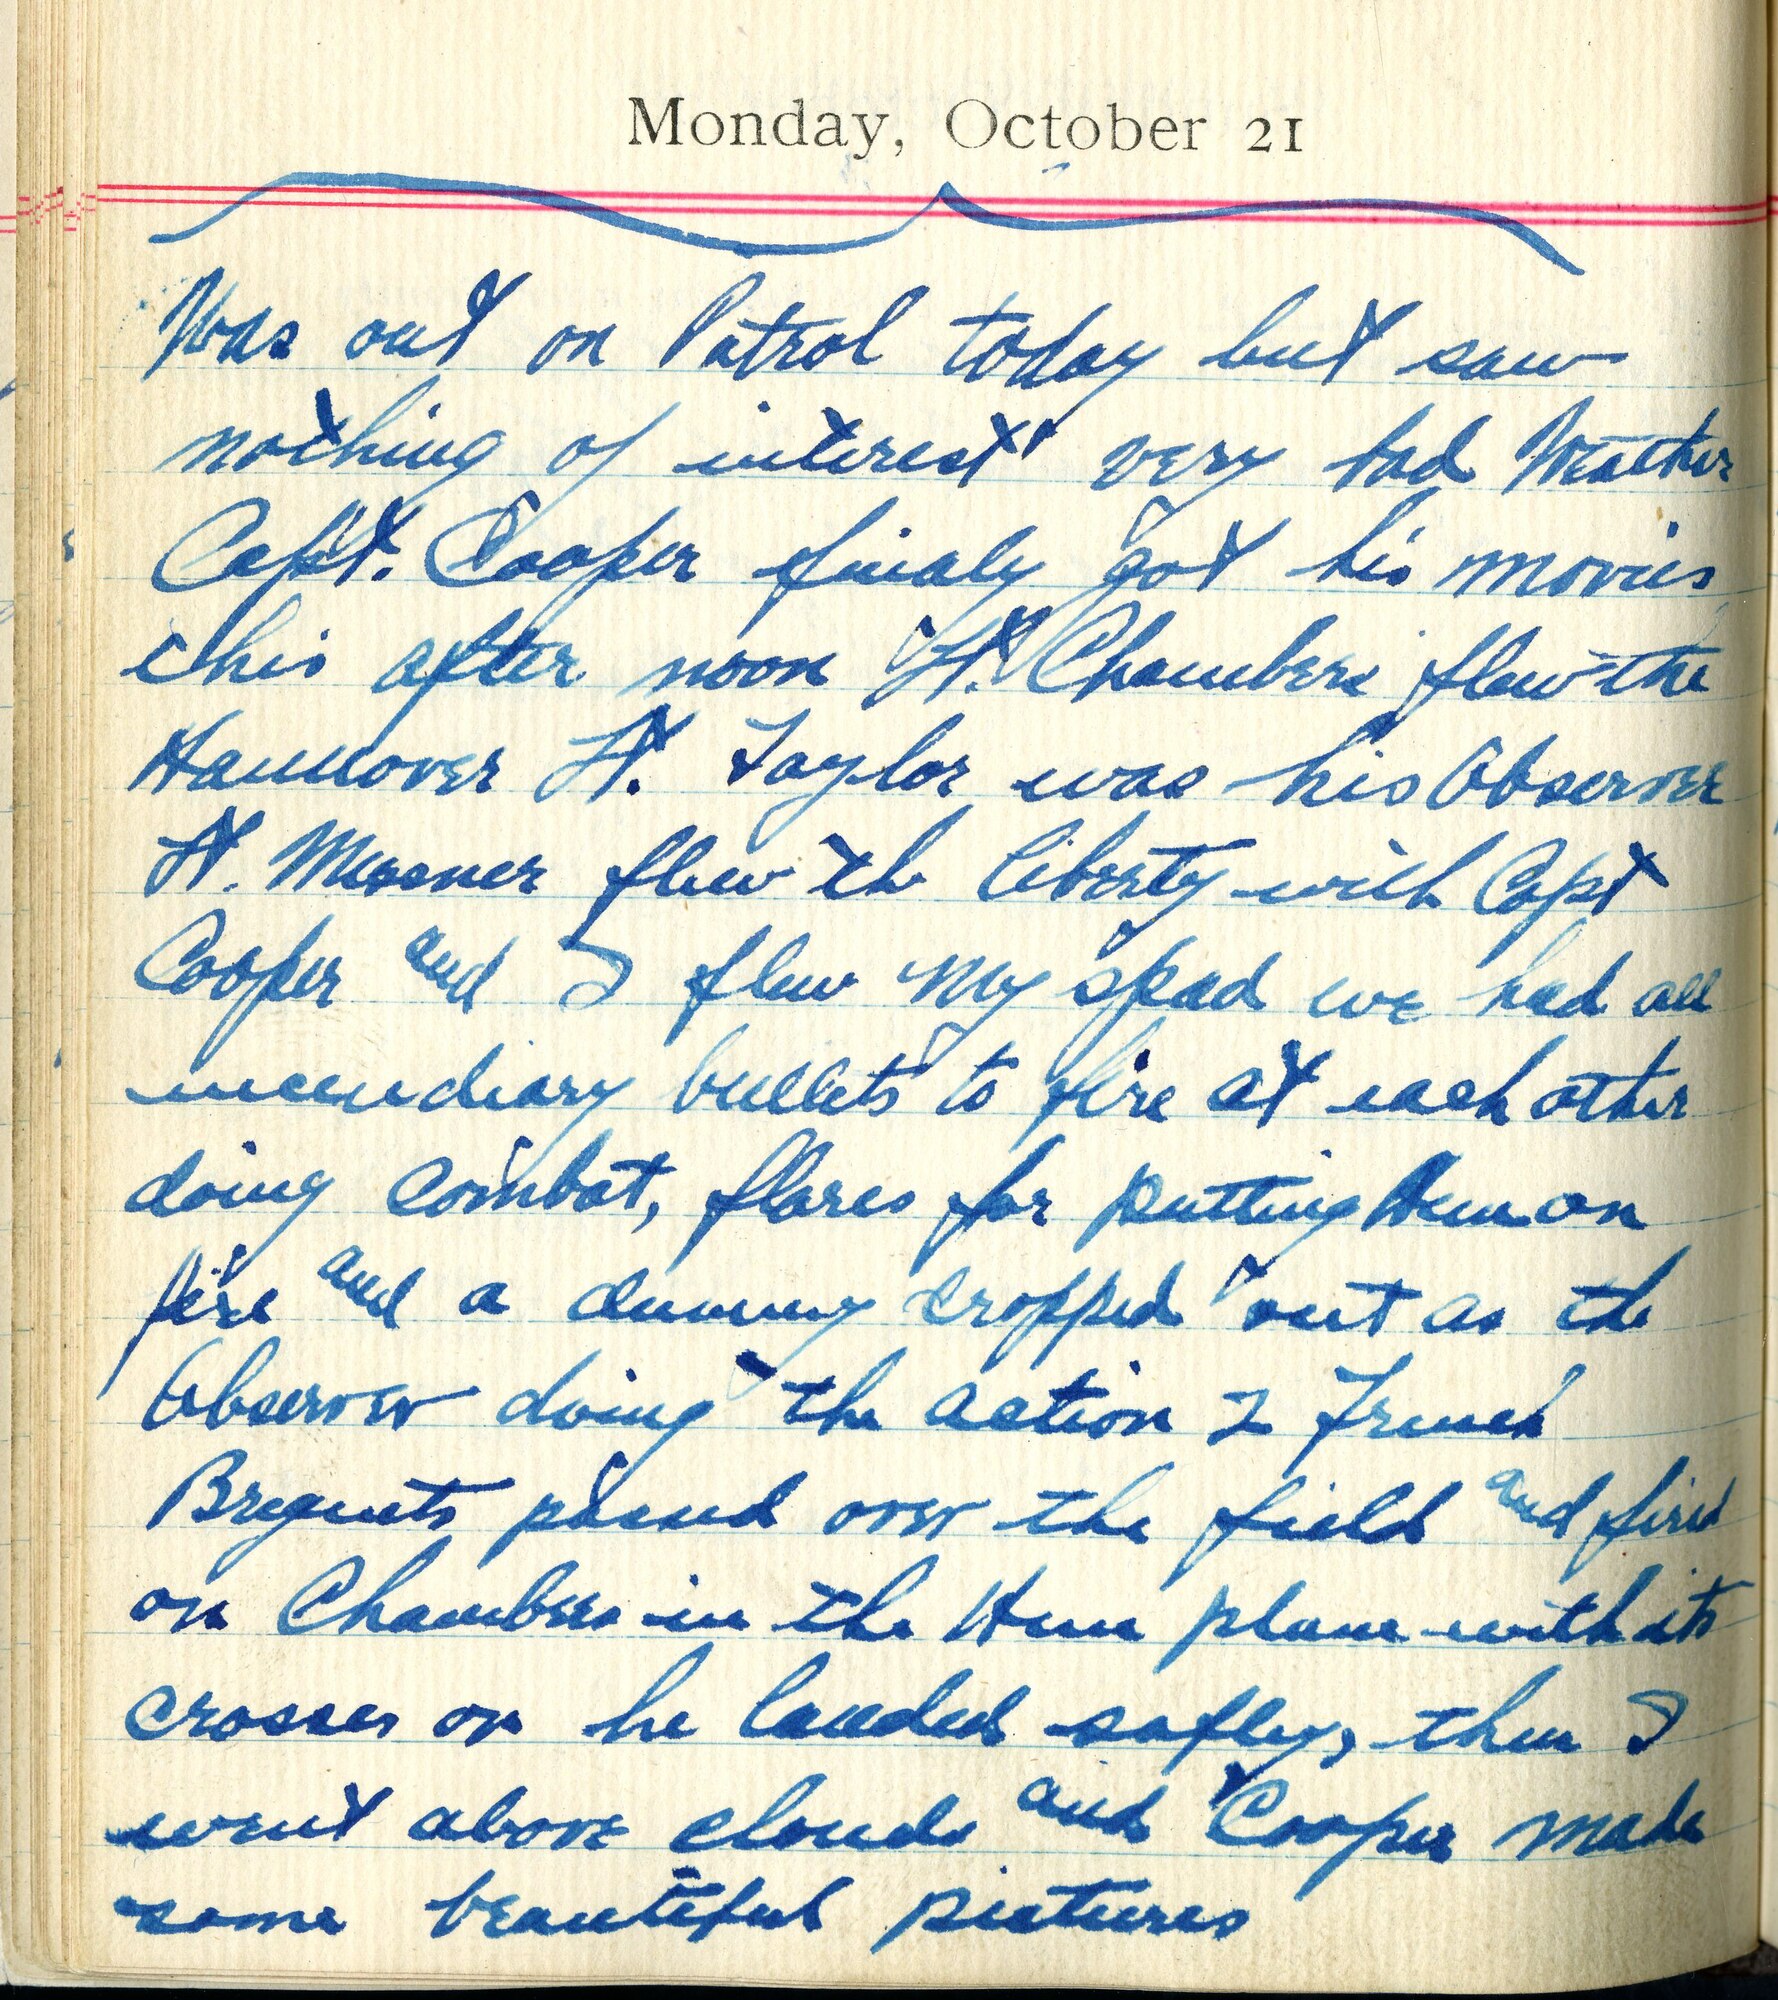 Monday, October 21
Was out on Patrol today but saw
nothing of interest very bad Weather
Capt. Cooper finaly got his movies
this after noon Lt. Chambers flew the
Hannover Lt. Taylor was his Observer
Lt. Meisner flew the liberty with Capt
Cooper and I flew My spad we had all
incendiary bullets to fire at each other
doing combat, flares for putting Hun on
fire and a dummy dropped out as the
Observer doing the action 2 French
Breguets passed over the field and fired
on Chambers in the Hun plane with its
crosses on he landed safley, then I
went above clouds and Cooper made
some beautiful pictures